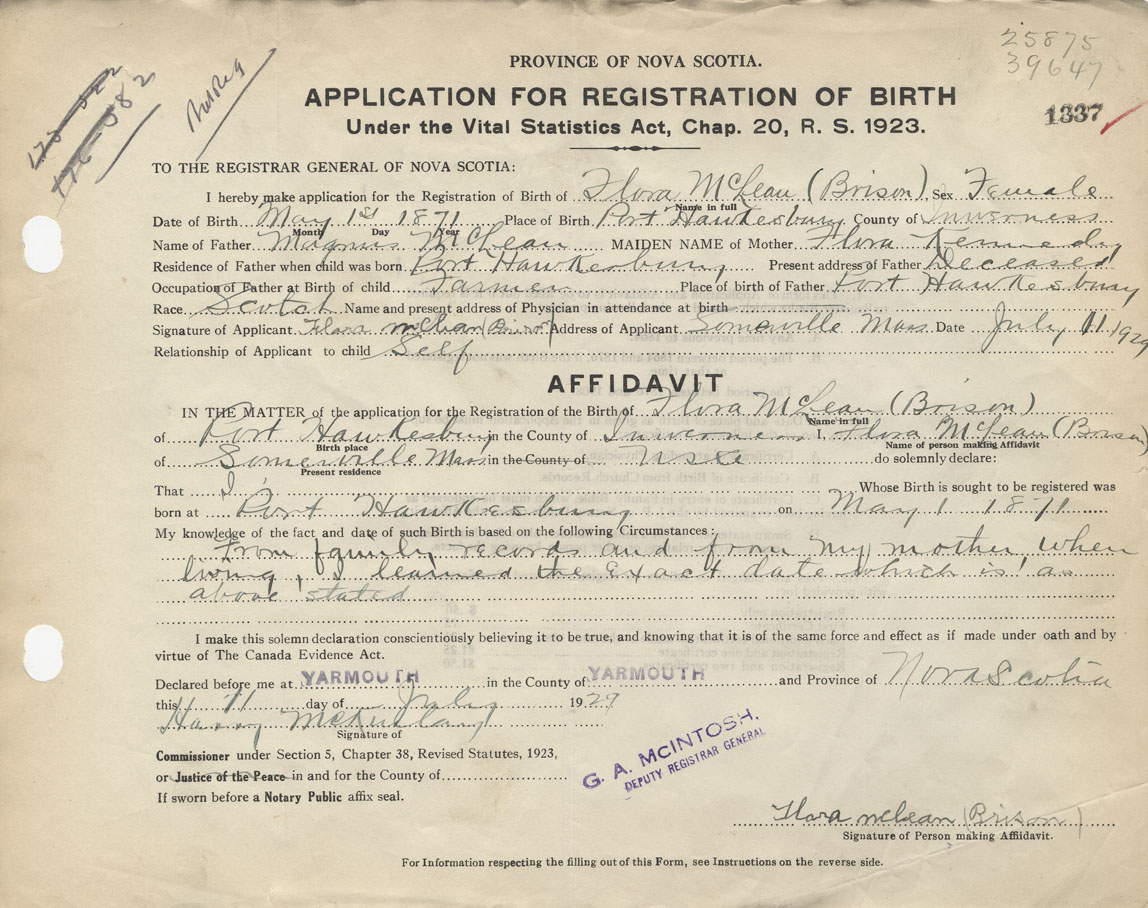 25875
39647
PROVINCE OF NOVA SCOTIA.
APPLICATION FOR REGISTRATION OF BIRTH
1337
Under the Vital Statistics Act, Chap. 20, R. S. 1923.
TO THE REGISTRAR GENERAL OF NOVA SCOTIA:
I hereby make application for the Registration of Birth of Flora McLean (Brison) Sex Female
Name in full
Date of Birth May 1st 1871 Place of Birth Port Hawkesbury County of Inverness
Month Day Year
Name of Father Magnus McLean MAIDEN NAME of Mother Flora Kennedy
Residence of Father when child was born Port Hawkesbury Present address of Father Deceased
Occupation of Father at Birth of child Farmer Place of birth of Father Port Hawkesbury
Race Scotch Name and present address of Physician in attendance at birth
Signature of Applicant Flora McLean (Brison) Address of Applicant Somerville Mass Date July 11 1929
Relationship of Applicant to child Self
AFFIDAVIT
IN THE MATTER of the application for the Registration of the Birth of Flora McLean (Brison)
Name in full
of Port Hawkesbury in the County of Inverness I, Flora McLean (Brison)
Birth place Name of person making Affidavit
of Somerville Mass in the County of USA do solemnly declare:
Present residence
That I Whose Birth is sought to be registered was
born at Port Hawkesbury on May 1 1871
My knowledge of the fact and date of such Birth is based on the following Circumstances:
From family records and from my mother when
living, I learned the exact date which is as
above stated
I make this solemn declaration conscientiously believing it to be true, and knowing that it is of the same force and effect as if made under oath and by
virtue of The Canada Evidence Act.
Declared before me at YARMOUTH in the County of YARMOUTH and Province of Nova Scotia
this 11 day of July 1929
Harry
Signature of
Commissioner under Section 5, Chapter 38, Revised Statutes, 1923,
or Justice of the Peace in and for the County of
If sworn before a Notary Public affix seal.
G. A. MCINTOSH.
DEPUTY REGISTRAR GENERAL
Flora McLean (Brison)
Signature of Person making Affidavit.
For Information respecting the filling out of this Form, see Instructions on the reverse side.